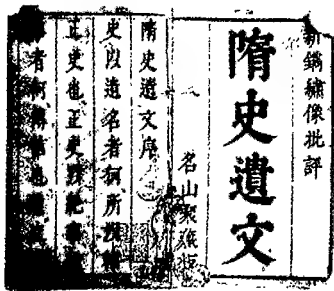 新鐫繡像批評
隋史遺文
名山聚藏板
隋史遺文序
史以遺名者何所以輔
正史也正史以紀事紀
者何傳信也遺